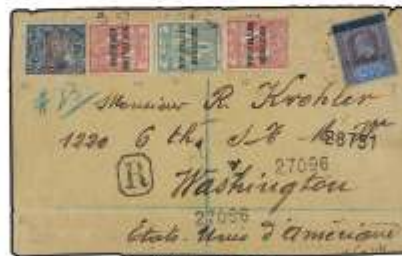 Monsieur R. Krohler
1220 6 th. St N.
28751
R
27096
Washington
27096
États-Unis d'Amérique